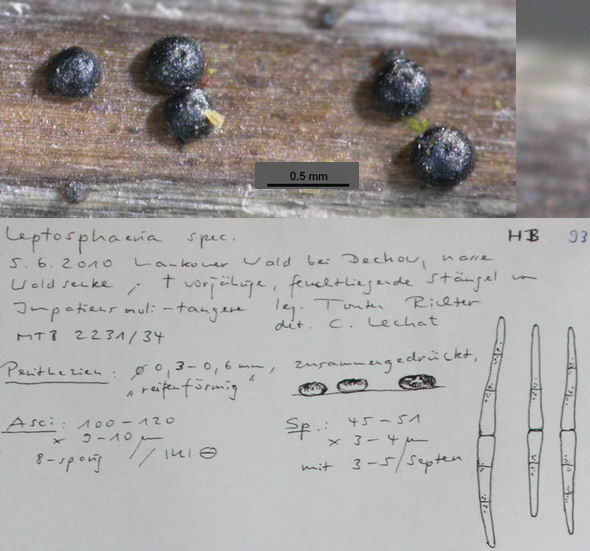 0.5 mm
Leptosphaeria spec. HB 93
5.6.2010 Lankower Wald bei Dechow, nasse
Waldsenke, † vorjährige, feuchtliegende Stängel von
Impatiens noli-tangere leg. Torsten Richter
MTB 2231/34 det. C. Lechat
Perithezien: ø 0,3-0,6 mm, zusammengedrückt,
"reifenförmig"
Asci: 100-120 Sp.: 45-51
x 9-10 µm x 3-4 µm
8-sporig / IKI ⊖ mit 3-5 Septen